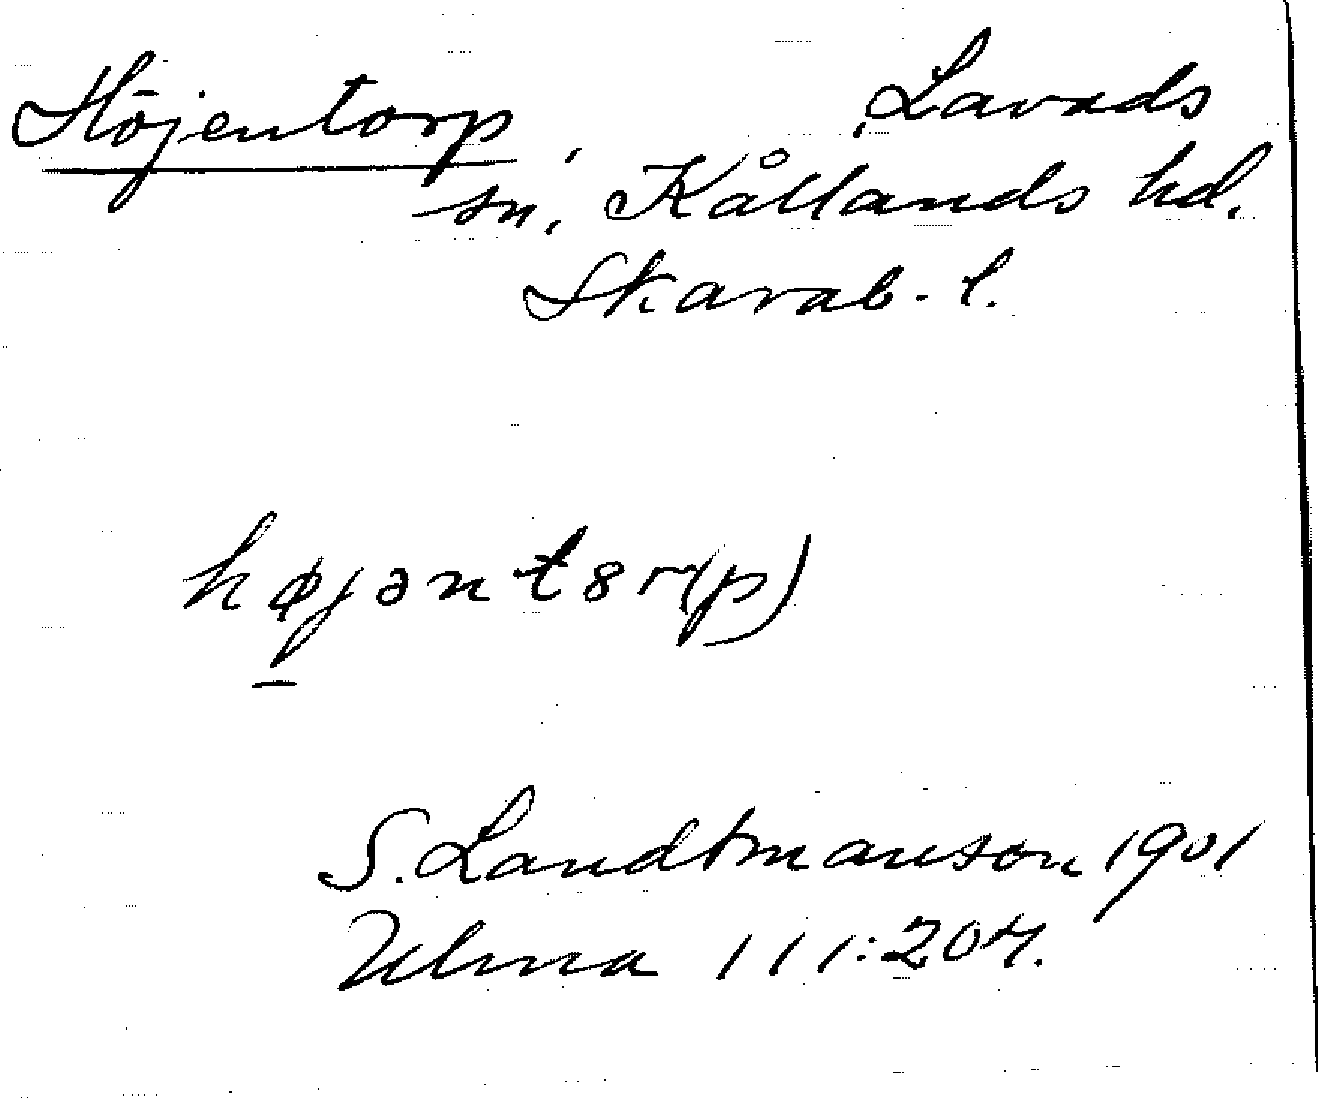 Höjentorp, Lavads
sn, Kållands hd.
Skarab. l.
højəntȣr(p)
S. Landtmanson 1901
Ulma 111:204.